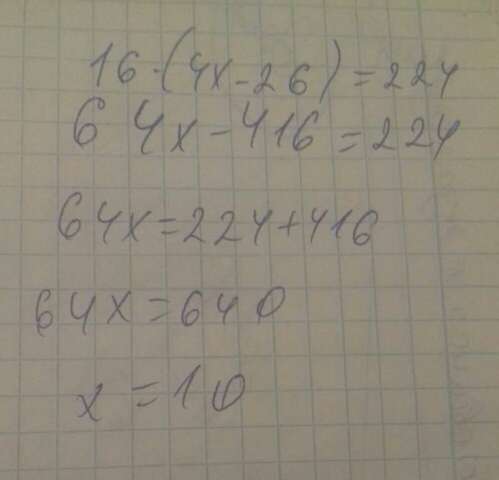 16·(4x-26)=224
64x-416=224
64x=224+416
64x=640
x=10